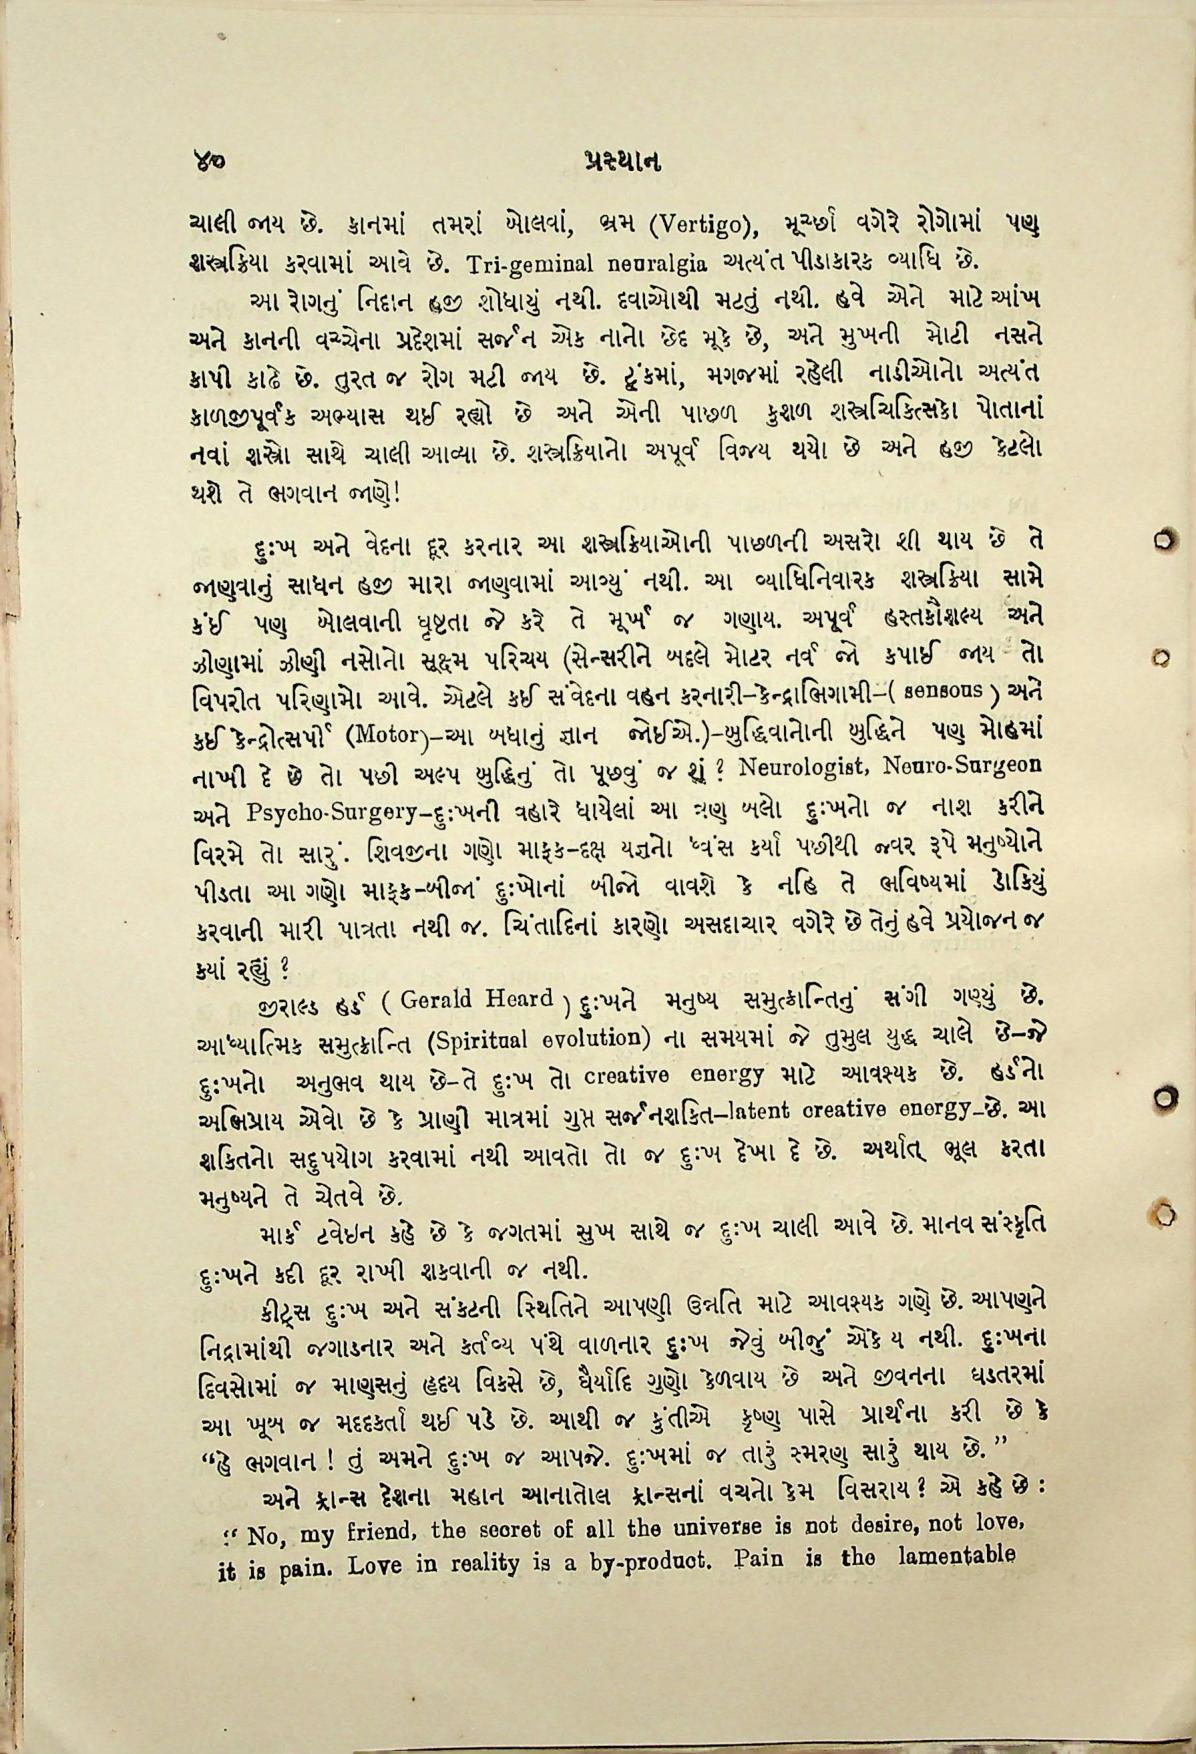 ૪૦
પ્રસ્થાન
ચાલી જાય છે. કાનમાં તમરાં બોલવાં, ભ્રમ (Vertigo), મૂર્ચ્છા વગેરે રોગોમાં પણ
શસ્ત્રક્રિયા કરવામાં આવે છે. Tri-geminal neuralgia અત્યંત પીડાકારક વ્યાધિ છે.
આ રોગનું નિદાન હજી શોધાયું નથી. દવાઓથી મટતું નથી. હવે એને માટે આંખ
અને કાનની વચ્ચેના પ્રદેશમાં સર્જન એક નાનો છેદ મૂકે છે, અને મુખની મોટી નસને
કાપી કાઢે છે. તુરત જ રોગ મટી જાય છે. ટૂંકમાં, મગજમાં રહેલી નાડીઓનો અત્યંત
કાળજીપૂર્વક અભ્યાસ થઈ રહ્યો છે અને એની પાછળ કુશળ શસ્ત્રચિકિત્સકો પોતાનાં
નવાં શસ્ત્રો સાથે ચાલી આવ્યા છે. શસ્ત્રક્રિયાનો અપૂર્વ વિજય થયો છે અને હજી કેટલો
થશે તે ભગવાન જાણે!
દુઃખ અને વેદના દૂર કરનાર આ શસ્ત્રક્રિયાઓની પાછળની અસરો શી થાય છે તે
જાણવાનું સાધન હજી મારા જાણવામાં આવ્યું નથી. આ વ્યાધિનિવારક શસ્ત્રક્રિયા સામે
કંઈ પણ બોલવાની ધૃષ્ટતા જે કરે તે મૂર્ખ જ ગણાય. અપૂર્વ હસ્તકૌશલ્ય અને
ઝીણામાં ઝીણી નસોનો સૂક્ષ્મ પરિચય (સેન્સરીને બદલે મોટર નર્વ જો કપાઈ જાય તો
વિપરીત પરિણામો આવે. એટલે કઈ સંવેદના વહન કરનારી–કેન્દ્રાભિગામી–( sensous ) અને
કઈ કેન્દ્રોત્સર્પી (Motor)–આ બધાનું જ્ઞાન જોઈએ.)–બુદ્ધિવાનોની બુદ્ધિને પણ મોહમાં
નાખી દે છે તો પછી અલ્પ બુદ્ધિનું તો પૂછવું જ શું ? Neurologist, Neuro-Surgeon
અને Psycho-Surgery–દુઃખની વહારે ધાયેલાં આ ત્રણ બલો દુઃખનો જ નાશ કરીને
વિરમે તો સારું. શિવજીના ગણો માફક–દક્ષ યજ્ઞનો ધ્વંસ કર્યા પછીથી જ્વર રૂપે મનુષ્યોને
પીડતા આ ગણો માફક–બીજાં દુઃખોનાં બીજો વાવશે કે નહિ તે ભવિષ્યમાં ડોકિયું
કરવાની મારી પાત્રતા નથી જ. ચિંતાદિનાં કારણો અસદાચાર વગેરે છે તેનું હવે પ્રયોજન જ
ક્યાં રહ્યું ?
જીરાલ્ડ હર્ડ ( Gerald Heard ) દુઃખને મનુષ્ય સમુત્ક્રાન્તિનું સંગી ગણ્યું છે.
આધ્યાત્મિક સમુત્ક્રાન્તિ (Spiritual evolution) ના સમયમાં જે તુમુલ યુદ્ધ ચાલે છે–જે
દુઃખનો અનુભવ થાય છે–તે દુઃખ તો creative energy માટે આવશ્યક છે. હર્ડનો
અભિપ્રાય એવો છે કે પ્રાણી માત્રમાં ગુપ્ત સર્જનશક્તિ–latent creative energy–છે. આ
શક્તિનો સદુપયોગ કરવામાં નથી આવતો તો જ દુઃખ દેખા દે છે. અર્થાત્ ભૂલ કરતા
મનુષ્યને તે ચેતવે છે.
માર્ક ટવેઇન કહે છે કે જગતમાં સુખ સાથે જ દુઃખ ચાલી આવે છે. માનવ સંસ્કૃતિ
દુઃખને કદી દૂર રાખી શકવાની જ નથી.
કીટ્સ દુઃખ અને સંકટની સ્થિતિને આપણી ઉન્નતિ માટે આવશ્યક ગણે છે. આપણને
નિદ્રામાંથી જગાડનાર અને કર્તવ્ય પંથે વાળનાર દુઃખ જેવું બીજું એકે ય નથી. દુઃખના
દિવસોમાં જ માણસનું હૃદય વિકસે છે, ધૈર્યાદિ ગુણો કેળવાય છે અને જીવનના ઘડતરમાં
આ ખૂબ જ મદદકર્તા થઈ પડે છે. આથી જ કુંતીએ કૃષ્ણ પાસે પ્રાર્થના કરી છે કે
“હે ભગવાન ! તું અમને દુઃખ જ આપજે. દુઃખમાં જ તારું સ્મરણ સારું થાય છે.”
અને ફ્રાન્સ દેશના મહાન આનાતોલ ફ્રાન્સનાં વચનો કેમ વિસરાય? એ કહે છે :
“ No, my friend, the secret of all the universe is not desire, not love,
it is pain. Love in reality is a by-product. Pain is the lamentable